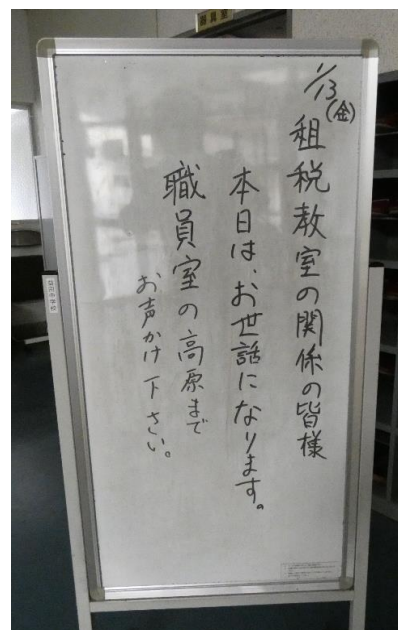 1/13
(金)
租税教室の関係の皆様
本日は、お世話になります。
職員室の高原まで
お声かけ下さい。